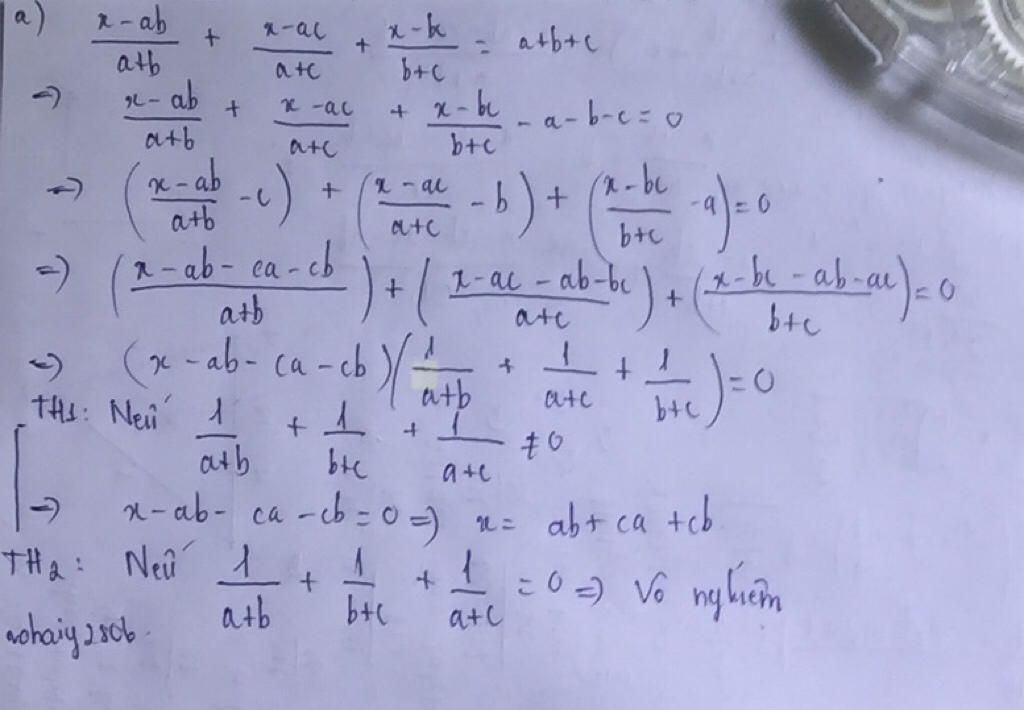 a) (x-ab)/(a+b) + (x-ac)/(a+c) + (x-bc)/(b+c) = a+b+c
=> (x-ab)/(a+b) + (x-ac)/(a+c) + (x-bc)/(b+c) - a - b - c = 0
=> ((x-ab)/(a+b) - c) + ((x-ac)/(a+c) - b) + ((x-bc)/(b+c) - a) = 0
=> ((x-ab-ca-cb)/(a+b)) + ((x-ac-ab-bc)/(a+c)) + ((x-bc-ab-ac)/(b+c)) = 0
=> (x-ab-ca-cb)(1/(a+b) + 1/(a+c) + 1/(b+c)) = 0
TH1: Nếu 1/(a+b) + 1/(b+c) + 1/(a+c) ≠ 0
=> x-ab-ca-cb=0 => x= ab+ca+cb
TH2: Nếu 1/(a+b) + 1/(b+c) + 1/(a+c) = 0 => Vô nghiệm